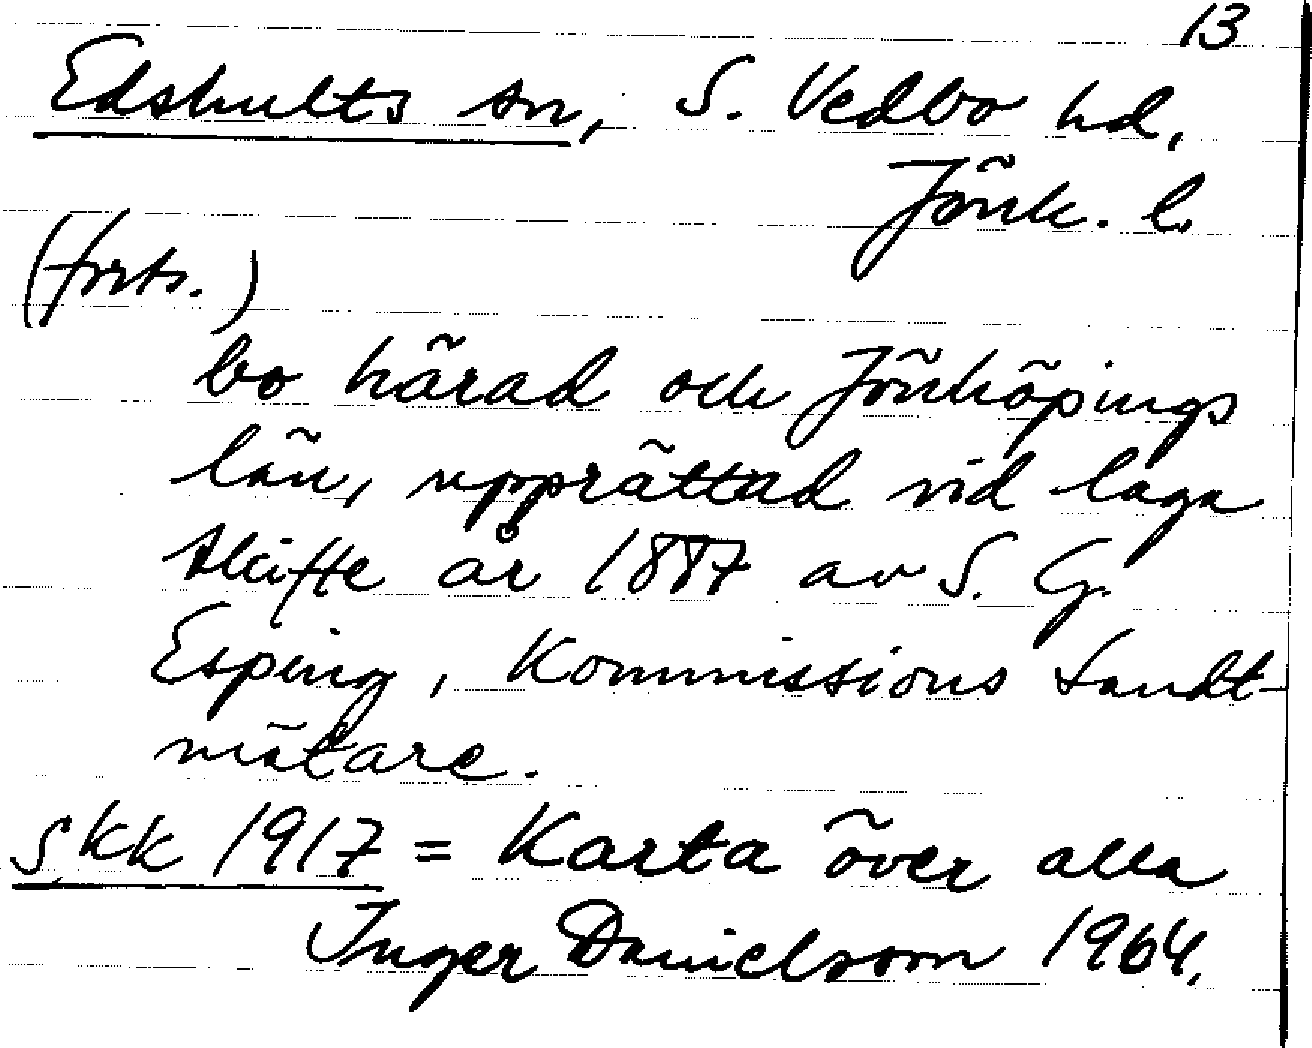 13
Edshults sn, S. Vedbo hd,
Jönk. l.
(forts.)
bo härad och Jönköpings
län, upprättad vid laga
skifte år 1887 av S. G.
Esping, Kommissions Landt-
mätare.
SKK 1917 = Karta över alla
Inger Danielsson 1964.